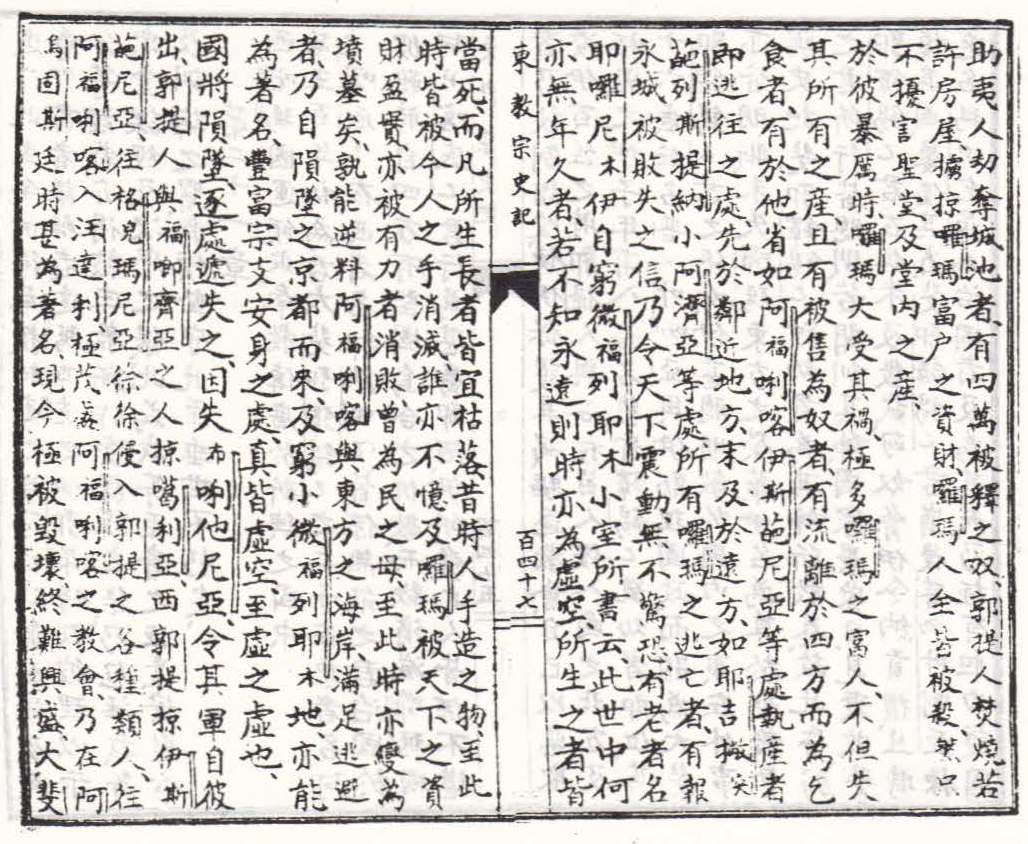 助夷人刧奪城池者、有四萬被釋之奴、郭提人焚燒若
許房屋、擄掠囉瑪富户之資財、囉瑪人全皆被殺、然只
不擾害聖堂及堂内之産、
於彼暴厲時、囉瑪大受其禍、極多囉瑪之富人、不但失
其所有之産、且有被售為奴者、有流離於四方而為乞
食者、有於他省如阿福唎喀伊斯葩尼亞等處執産者
即逃往之處、先於鄰近地方、末及於遠方、如耶吉撇突
葩列斯提納小阿濟亞等處、所有囉瑪之逃亡者、有報
永城被敗失之信、乃令天下震動、無不驚恐、有老者名
耶囉尼木伊自窮微福列耶木小室所書云、此世中何
亦無年久者若不知永遠則時亦為虛空、所生之者皆
東教宗史記
百四十七
當死、而凡所生長者皆宜枯落、昔時人手造之物、至此
時皆被今人之手消滅、誰亦不憶及囉瑪被天下之資
財盈實、亦被有力者消敗、曾為民之母、至此時亦變為
墳墓矣、孰能逆料阿福唎喀與東方之海岸、滿足逃避
者、乃自隕墜之京都而來、及窮小微福列耶木地、亦能
為著名、豐富宗支安身之處、真皆虛空、至虛之虛也、
國將隕墜、逐處遞失之、因失布唎他尼亞、令其軍自彼
出、郭提人與福啷齊亞之人掠噶利亞、西郭提掠伊斯
葩尼亞、往格皃瑪尼亞徐徐侵入郭提之各種類人、往
阿福唎喀入汪達利極茂甤阿福唎喀之教會、乃在阿
烏固斯廷時甚為著名、現今極被毀壞、終難興盛、大斐